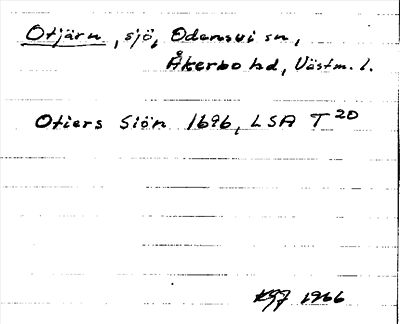 Otjärn, sjö, Odensvi sn,
Åkerbo hd, Västm. l.
Otiers Siön 1696, LSA T 20
1966